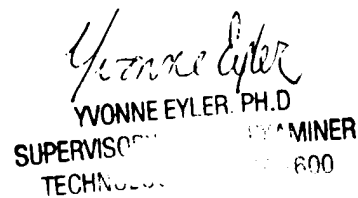 Yvonne Eyler
YVONNE EYLER, PH.D
SUPERVISO
AMINER
TECHN
600